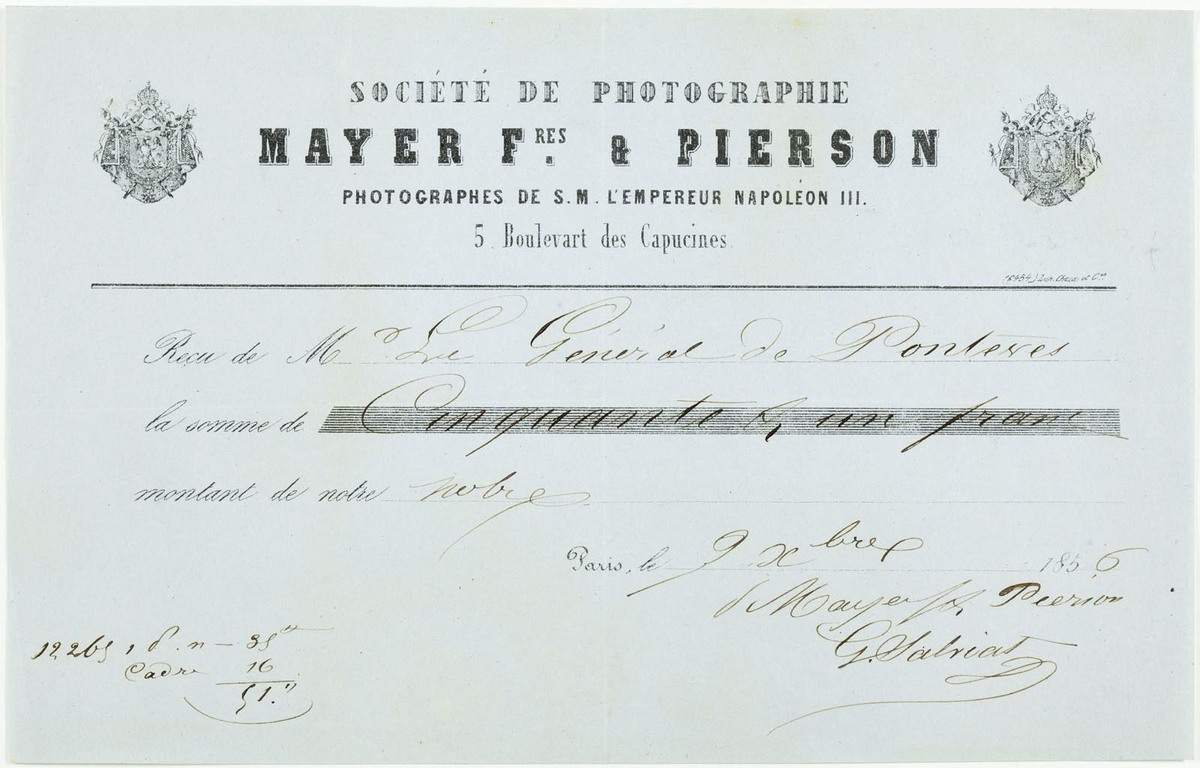 SOCIÉTÉ DE PHOTOGRAPHIE
MAYER FRES. & PIERSON
PHOTOGRAPHES DE S.M. L'EMPEREUR NAPOLÉON III.
5. Boulevart des Capucines.
Reçu de Mr Le Général de Pontevès
la somme de Cinquante & un franc
montant de notre notre
Paris, le 9 Xbre 1856
Mayer fs. Pierson
G. Salviat
12265, 1 P. n — 35
Cadre 16
51."